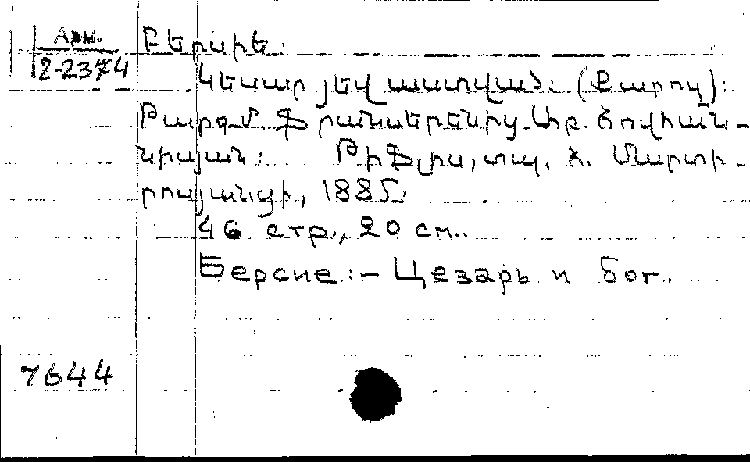 Арм.
2-2374
Բերսիե.
Կեսար յեվ աստված. (Քարոզ):
Թարգմ. Ֆրանսերենից Առ. Հովհան-
նիսյան: Թիֆլիս, տպ. Հ. Մարտի-
րոսյանցի, 1885.
46 стр., 20 см..
Берсие:- Цезарь и бог.
7644